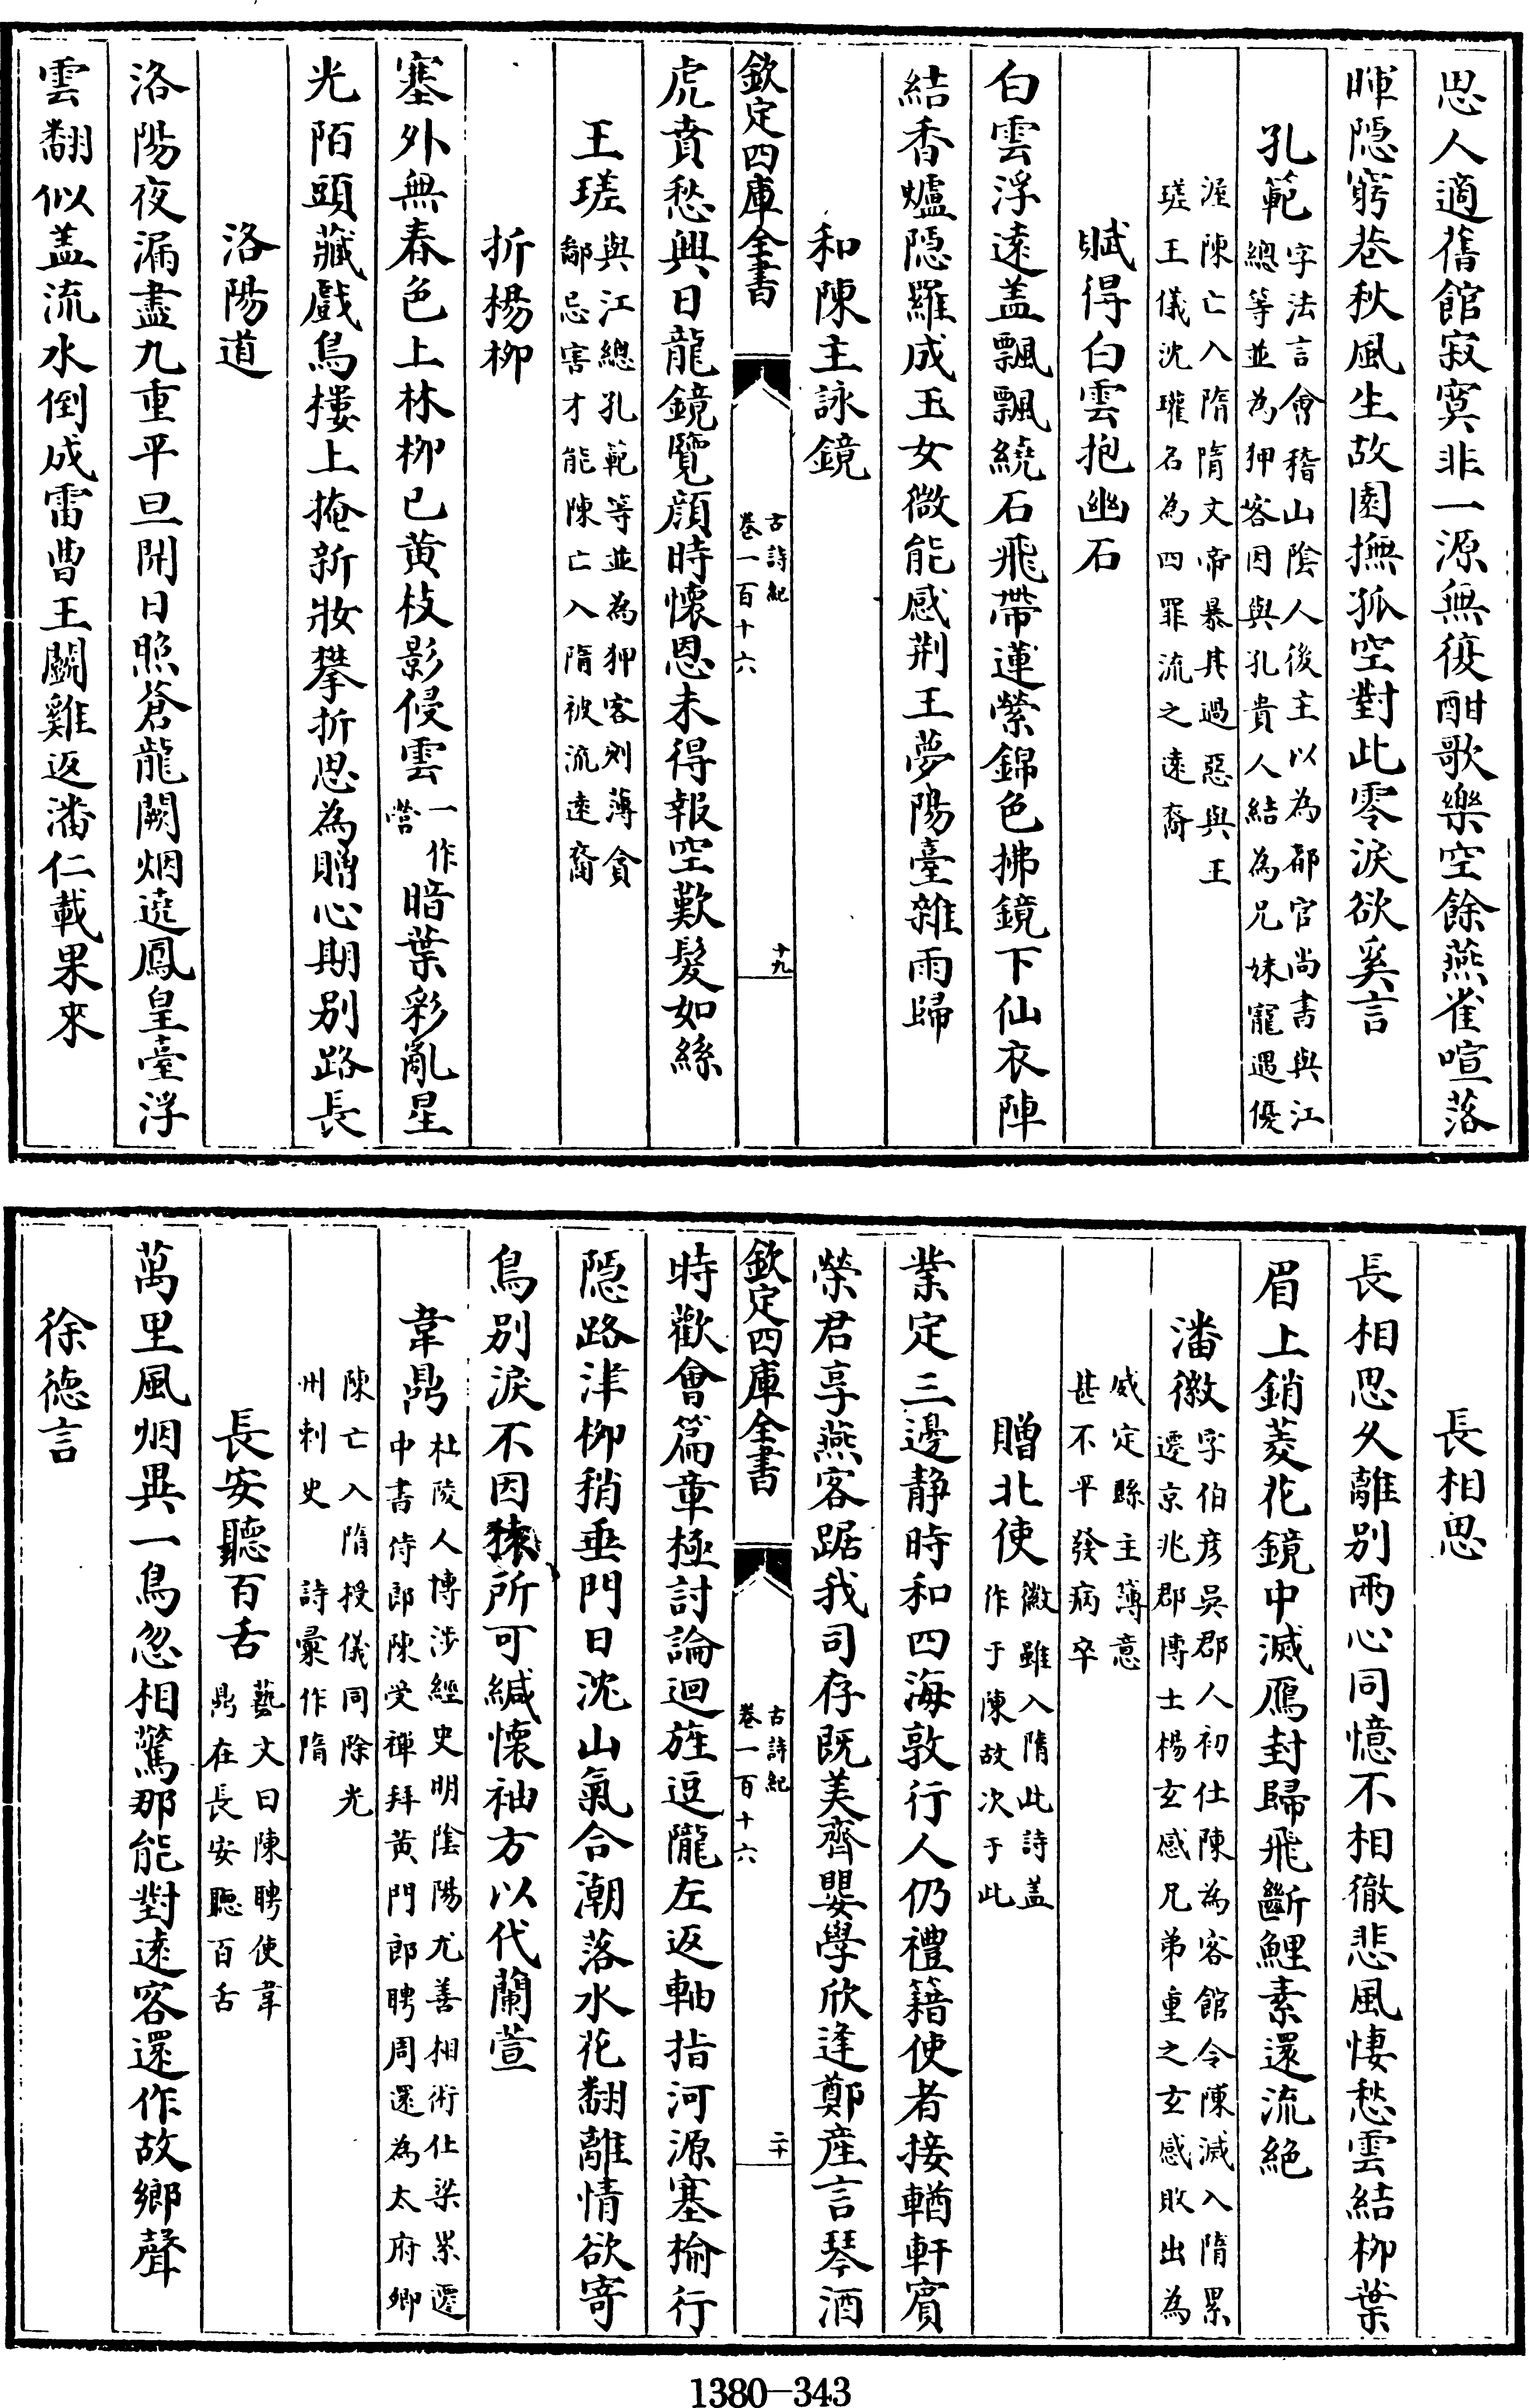 思人適舊館寂寞非一源無復酣歌樂空餘燕雀喧落
暉隠窮巷秋風生故園撫孤空對此零淚欲奚言
孔範字法言會稽山陰人後主以為都官尚書與江
總等並為狎客因與孔貴人結為兄妹寵遇優
渥陳亡入隋隋文帝暴其過惡與王
瑳王儀沈瓘名為四罪流之遠裔
賦得白雲抱幽石
白雲浮遠盖飄飄繞石飛帶蓮縈錦色拂鏡下仙衣陣
結香爐隠羅成玉女微能感荆王夢陽臺雜雨歸
和陳主詠鏡
欽定四庫全書
古詩紀
卷一百十六
十九
虎賁愁興日龍鏡覽顔時懷恩未得報空歎髮如絲
王瑳與江總孔範等並為狎客刻薄貪
鄙忌害才能陳亡入隋被流遠裔
折楊柳
塞外無春色上林柳已黄枝影侵雲一作
營暗葉彩亂星
光陌頭藏戲鳥樓上掩新妝攀折思為贈心期别路長
洛陽道
洛陽夜漏盡九重平旦開日照蒼龍闕烟遶鳳皇臺浮
雲翻似盖流水倒成雷曹王鬬雞返潘仁載果來
長相思
長相思久離别兩心同憶不相徹悲風悽愁雲結柳葉
眉上銷菱花鏡中滅鴈封歸飛斷鯉素還流絶
潘徽字伯彦吳郡人初仕陳為客館令陳滅入隋累
遷京兆郡博士楊玄感兄弟重之玄感敗出為
威定縣主簿意
甚不平發病卒
贈北使徽雖入隋此詩盖
作于陳故次于此
業定三邊静時和四海敦行人仍禮籍使者接輶軒賓
榮君享燕客踞我司存既美齊嬰學欣逢鄭産言琴酒
欽定四庫全書
古詩紀
卷一百十六
二十
時歡會篇章極討論迴旌逗隴左返軸指河源塞榆行
隠路津柳稍垂門日沈山氣合潮落水花翻離情欲寄
鳥别淚不因猿所可緘懷袖方以代蘭萱
韋鼎杜陵人博涉經史明陰陽尤善相術仕梁累遷
中書侍郎陳受禪拜黄門郎聘周還為太府卿
陳亡入隋授儀同除光
州刺史　詩彙作隋
長安聽百舌藝文曰陳聘使韋
鼎在長安聽百舌
萬里風烟異一鳥忽相驚那能對遠客還作故鄉聲
徐德言
1380-343